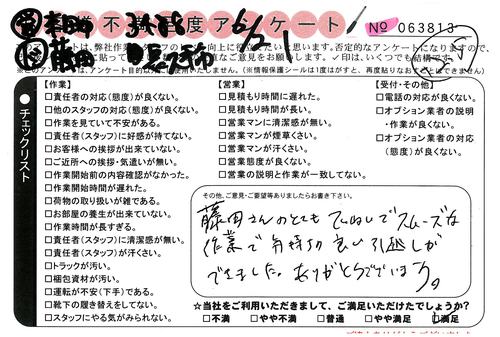 不満度アンケート
6/21
№ 063813
のアンケートは、弊社作業スタッフの
向上に役立たいと思います。否定的なアンケートになりますので、
✓印は、いくつでも結構です。
(※情報保護シールは1度がすと、再度貼りなおすことはできません)
チェックリスト
【作業】
□責任者の対応(態度)が良くない。
□他のスタッフの対応(態度)が良くない。
□作業を見ていて不安がある。
□責任者(スタッフ)に好感が持てない。
□お客様への挨拶が出来ていない。
□ご近所への挨拶・気遣いが無い。
□作業開始前の内容確認がなかった。
□作業開始時間が遅れた。
□荷物の取り扱いが雑である。
□お部屋の養生が出来ていない。
□作業時間が長すぎる。
□責任者(スタッフ)に清潔感が無い。
□責任者(スタッフ)が汗くさい。
□トラックが汚い。
□梱包資材が汚い。
□運転が不安(下手)である。
□靴下の履き替えをしてない。
□スタッフにやる気がみられない。
【営業】
□見積もり時間に遅れた。
□見積もり時間が長い。
□営業マンに清潔感が無い。
□営業マンが煙草くさい。
□営業マンが汗くさい。
□営業態度が良くない。
□営業の説明と作業が一致してない。
【受付・その他】
□電話の対応が良くない。
□オプション業者の説明
・作業が良くない。
□オプション業者の対応
(態度)が良くない。
その他、ご意見・ご要望等ありましたらお書き下さい。
藤田さんのとても ていねいでスムーズな
作業で気持ち良い引越しが
できました。ありがとうございます。
☆当社をご利用いただきまして、ご満足いただけたでしょうか?
□不満 □やや不満 □普通 □やや満足 ☑満足